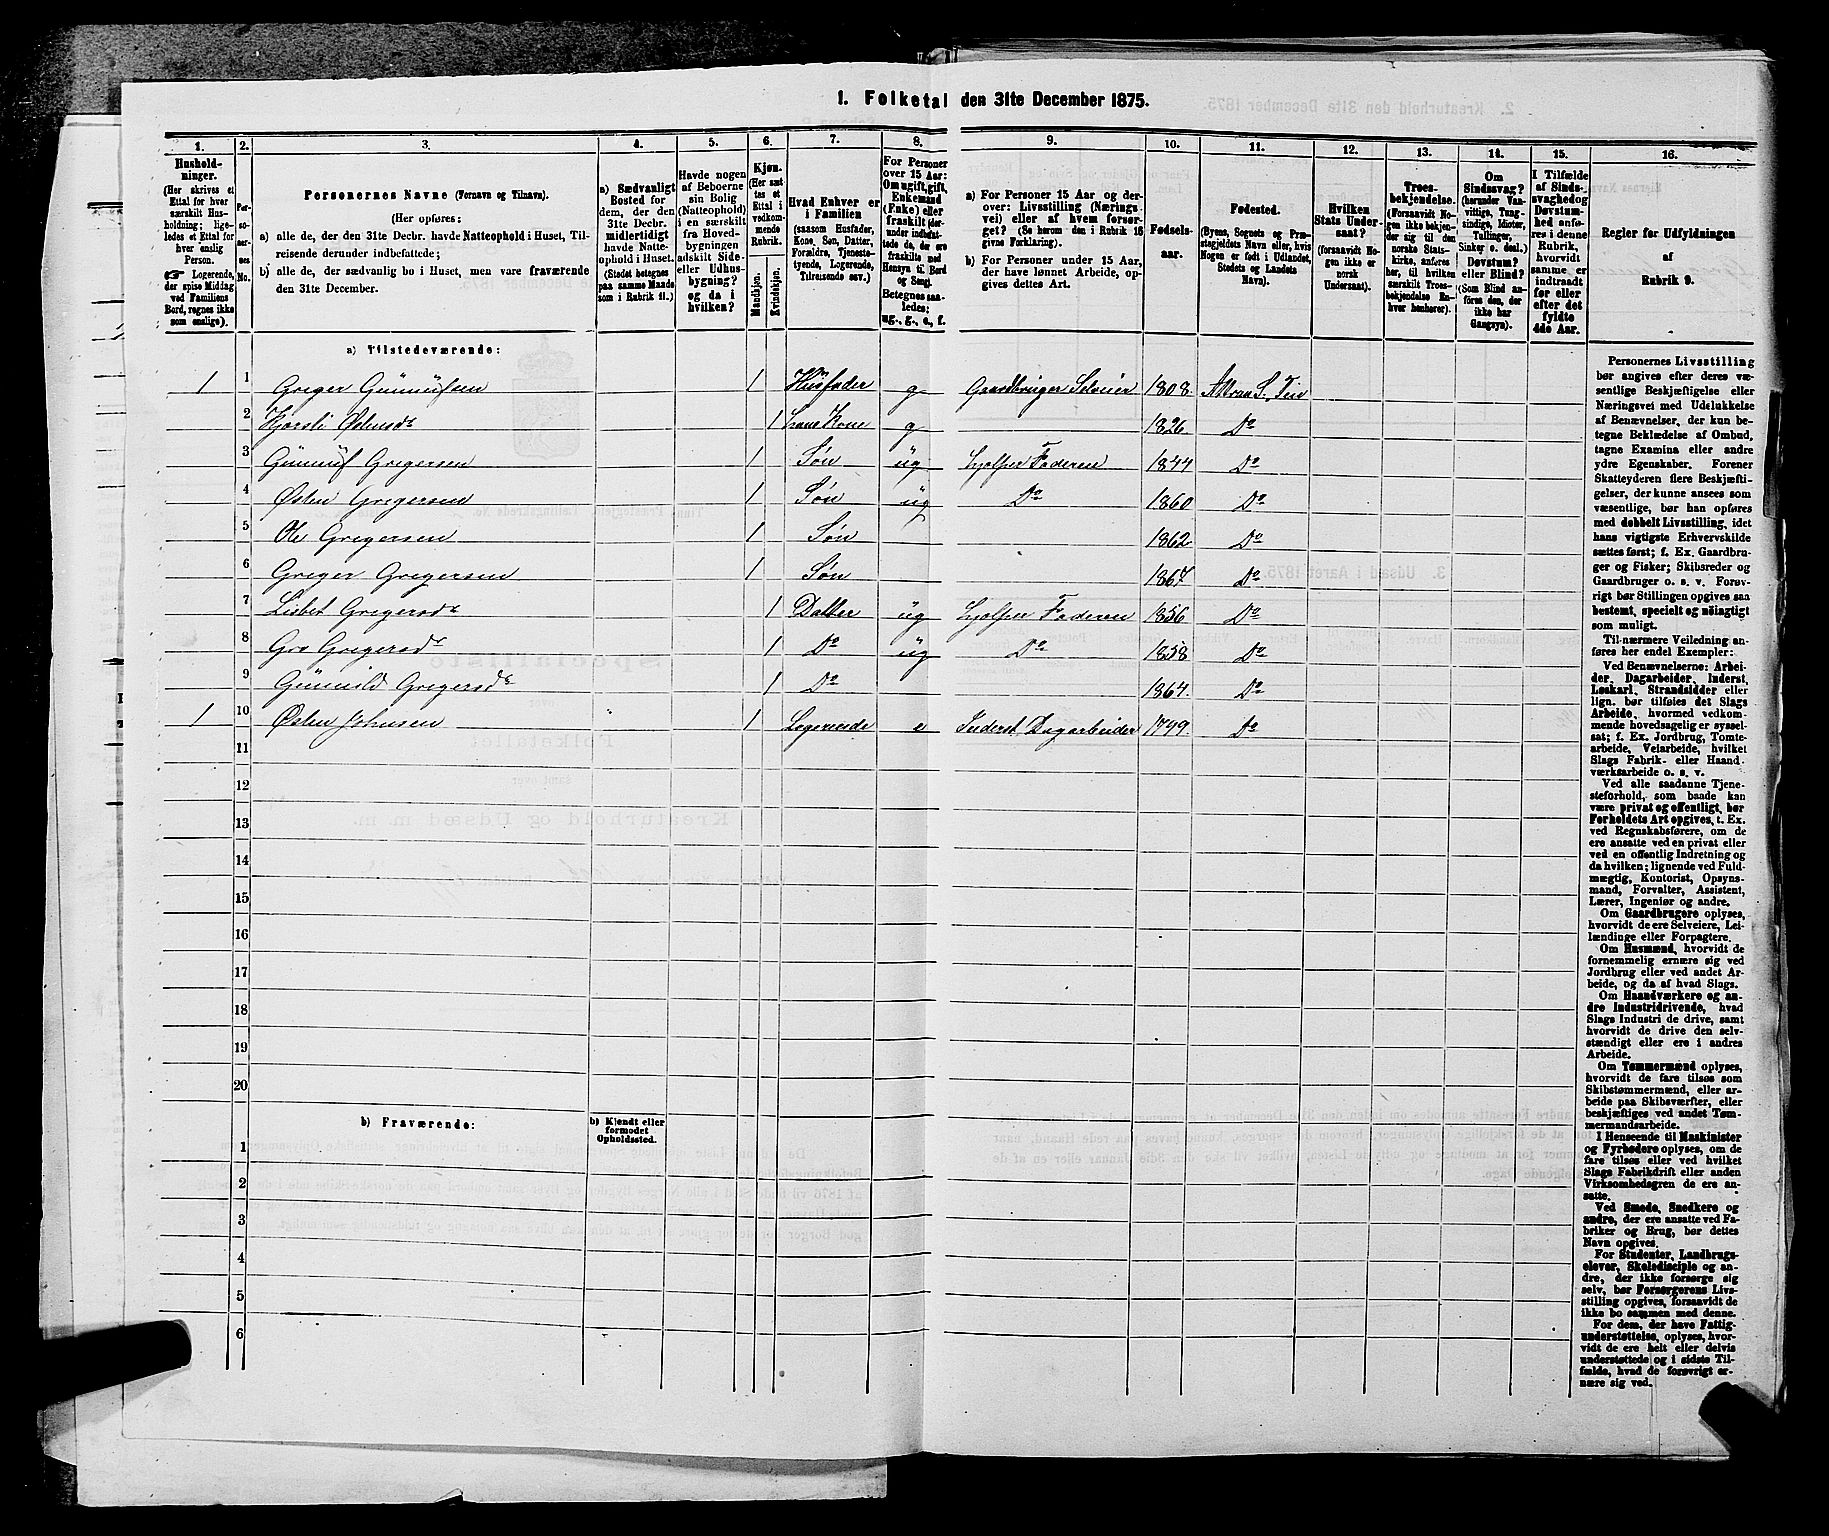 1. Folketal den 31te December 1875.
1. 2. 3. 4. 5. 6. 7. 8. 9. 10. 11. 12. 13. 14. 15. 16.
Hushold-
ninger.
(Her skrives et
Ettal for hver
særskilt Hus-
holdning; lige-
ledes et Ettal for
hver enslig
Person.
☛ Logerende,
der spise Middag
ved Familiens
Bord, regnes ikke
som enslige).
Per-
so-
ner-
nes
No.
Personernes Navne (Fornavn og Tilnavn).
(Her opføres;
a) alle de, der den 31te Decbr. havde Natteophold i Huset, Til-
reisende derunder indbefattede;
b) alle de, der sædvanlig bo i Huset, men vare fraværende
den 31te December.
a) Sædvanligt
Bosted for
dem, der den
31te Decbr.
midlertidigt
havde Natte-
ophold i Huset.
(Stedet betegnes
paa samme Maade
som i Rubrik 11.)
Havde nogen
af Beboerne
sin Bolig
(Natteophold)
i en særskilt
fra Hoved-
bygningen
adskilt Side-
eller Udhus-
bygning?
og da i
hvilken?
Kjøn.
(Her sæt
tes et
Ettal i
vedkom-
mende
Rubrik.
Mandkjøn.
Kvindekjøn.
Hvad Enhver er
i Familien
(saasom Husfader,
Kone, Søn, Datter,
Forældre, Tjeneste-
tyende, Logerende,
Tilreisende osv.)
For Personer
over 15 Aar:
Om ugift, gift,
Enkemand
(Enke) eller
fraskilt (der-
under indbefat-
tede da, der ere
fraskilte med
Hensyn til Bord
og Seng).
Betegnes saa-
ledes:
ug., g., e., f.
a) For Personer 15 Aar og der-
over: Livsstilling (Nærings-
vei) eller af hvem forsør-
get? (Se herom den i Rubrik 16
givne Forklaring).
b) For Personer under 15 Aar,
der have lønnet Arbeide, op-
gives dettes Art.
Fødsels-
aar.
Fødested.
(Byens, Sognets og Præ-
stegjeldets Navn eller, hvis
Nogen er født i Udlandet,
Stedets og Landets
Navn).
Hvilken
Stats Under-
saat?
(forsaavidt No-
gen ikke er
norsk
Undersaat).
Troes-
bekjendelse.
(Forsaavidt No-
gen ikke bekjen-
der sig til den
norske Stats-
kirke, anføres
her, til hvilken
særskilt Troes-
bekjendelse En-
hver henhører).
Om
Sindssvag?
(herunder Van-
vittige, Tung-
sindige, Idioter,
Tullinger,
Sinker o. desl.)
Døvstum?
eller Blind?
(Som Blind an-
føres den, der
ikke har
Gangsyn).
I Tilfælde
af Sinds-
svaghed og
Døvstum-
hed anfø-
res i denne
Rubrik,
hvorvidt
samme er
indtraadt
før eller
efter det
fyldte
4de Aar.
Regler for Udfyldningen
af
Rubrik 9.
a) Tilstedeværende:
1 1 Greger Gunnufsen 1 Husfader g Gaardbruger Selveier 1808. Attraa S. Tin
2 Kjersti Østensdr 1 hans Kone g 1826 Do
3 Gunnuf Gregersen 1 Søn ug hjelper Faderen 1844 Do
4 Østen Gregersen 1 Søn ug Do 1860 Do
5 Ole Gregersen 1 Søn 1862 Do
6 Greger Gregersen 1 Søn 1867 Do
7 Lisbet Gregersdr 1 Datter ug hjelper Faderen 1856 Do
8 Gro Gregersdr 1 Do ug Do 1858 Do
9 Gunnild Gregersdr 1 Do 1864. Do
1 10 Østen Johnsen 1 Logerende e Inderst Dagarbeider 1799. Do
11
12
13
14
15
16
17
18
19
20
b) Fraværende:
b) Kjendt eller
formodet
Opholdssted.
1
2
3
4
5
6
Personernes Livsstilling
bør angives efter deres væ-
sentlige Beskjæftigelse eller
Næringsvei med Udelukkelse
af Benævnelser, der kun be-
tegne Beklædelse af Ombud,
tagne Examina eller andre
ydre Egenskaber. Forener
Skatteyderen flere Beskjæfti-
gelser, der kunne ansees som
væsentlige, bør han opføres
med dobbelt Livsstilling, idet
hans vigtigste Erhvervskilde
sættes først; f. Ex. Gaardbru-
ger og Fisker; Skibsreder og
Gaardbruger o. s. v. Forøv-
rigt bør Stillingen opgives saa
bestemt, specielt og nöiagtigt
som muligt.
Til nærmere Veiledning an-
føres her endel Exempler:
Ved Benævnelserne: Arbei-
der, Dagarbeider, Inderst,
Løskarl, Strandsidder eller
lign. bør tilføies det Slags
Arbeide, hvormed vedkom-
mende hovedsagelig er syssel-
sat; f. Ex. Jordbrug, Tomte-
arbeide, Veiarbeide, hvilket
Slags Fabrik- eller Haand-
værksarbeide o. s. v.
Ved alle saadanne Tjene-
steforhold, som baade kan
være privat og offentligt, bør
Forholdets Art opgives, t. Ex.
ved Regnskabsførere, om de
ere ansatte ved en privat eller
ved en offentlig Indretning og
da hvilken; lignende ved Fuld-
mægtig, Kontorist, Opsyns-
mand, Forvalter, Assistent,
Lærer, Ingeniør og andre.
Om Gaardbrugere oplyses,
hvorvidt de ere Selveiere, Lei-
lændinge eller Forpagtere.
Om Husmænd, hvorvidt de
fornemmelig ernære sig ved
Jordbrug eller ved andet Ar-
beide, og da af hvad Slags.
Om Haandværkere og an-
dre Industridrivende, hvad
Slags Industri de drive, samt
hvorvidt de drive den selv-
stændigt eller ere i andres
Arbeide.
Om Tømmermænd oplyses,
hvorvidt de fare tilsøs som
Skibstømmermænd, eller ar-
beide paa Skibsværfter, eller
beskjæftiges ved andet Tøm-
mermandsarbeide.
I Henseende til Maskinister
og Fyrbødere oplyses, om de
fare tilsøs eller ved hvilket
Slags Fabrikdrift eller anden
Virksomhedsgren de ere an-
satte.
Ved Smede, Snedkere og
andre, der ere ansatte ved Fa-
briker og Brug, bør dettes
Navn opgives.
For Studenter, Landbrugs-
elever, Skoledisciple og an-
dre, der ikke forsørge sig
selv, bør Forsørgerens Livs-
stilling opgives, forsaavidt de
ikke bo sammen med denne.
For dem, der have Fattig-
understøttelse, oplyses, hvor-
vidt de ere helt eller delvis
understøttede og i sidste Til-
fælde, hvad de forøvrigt er-
nære sig ved.